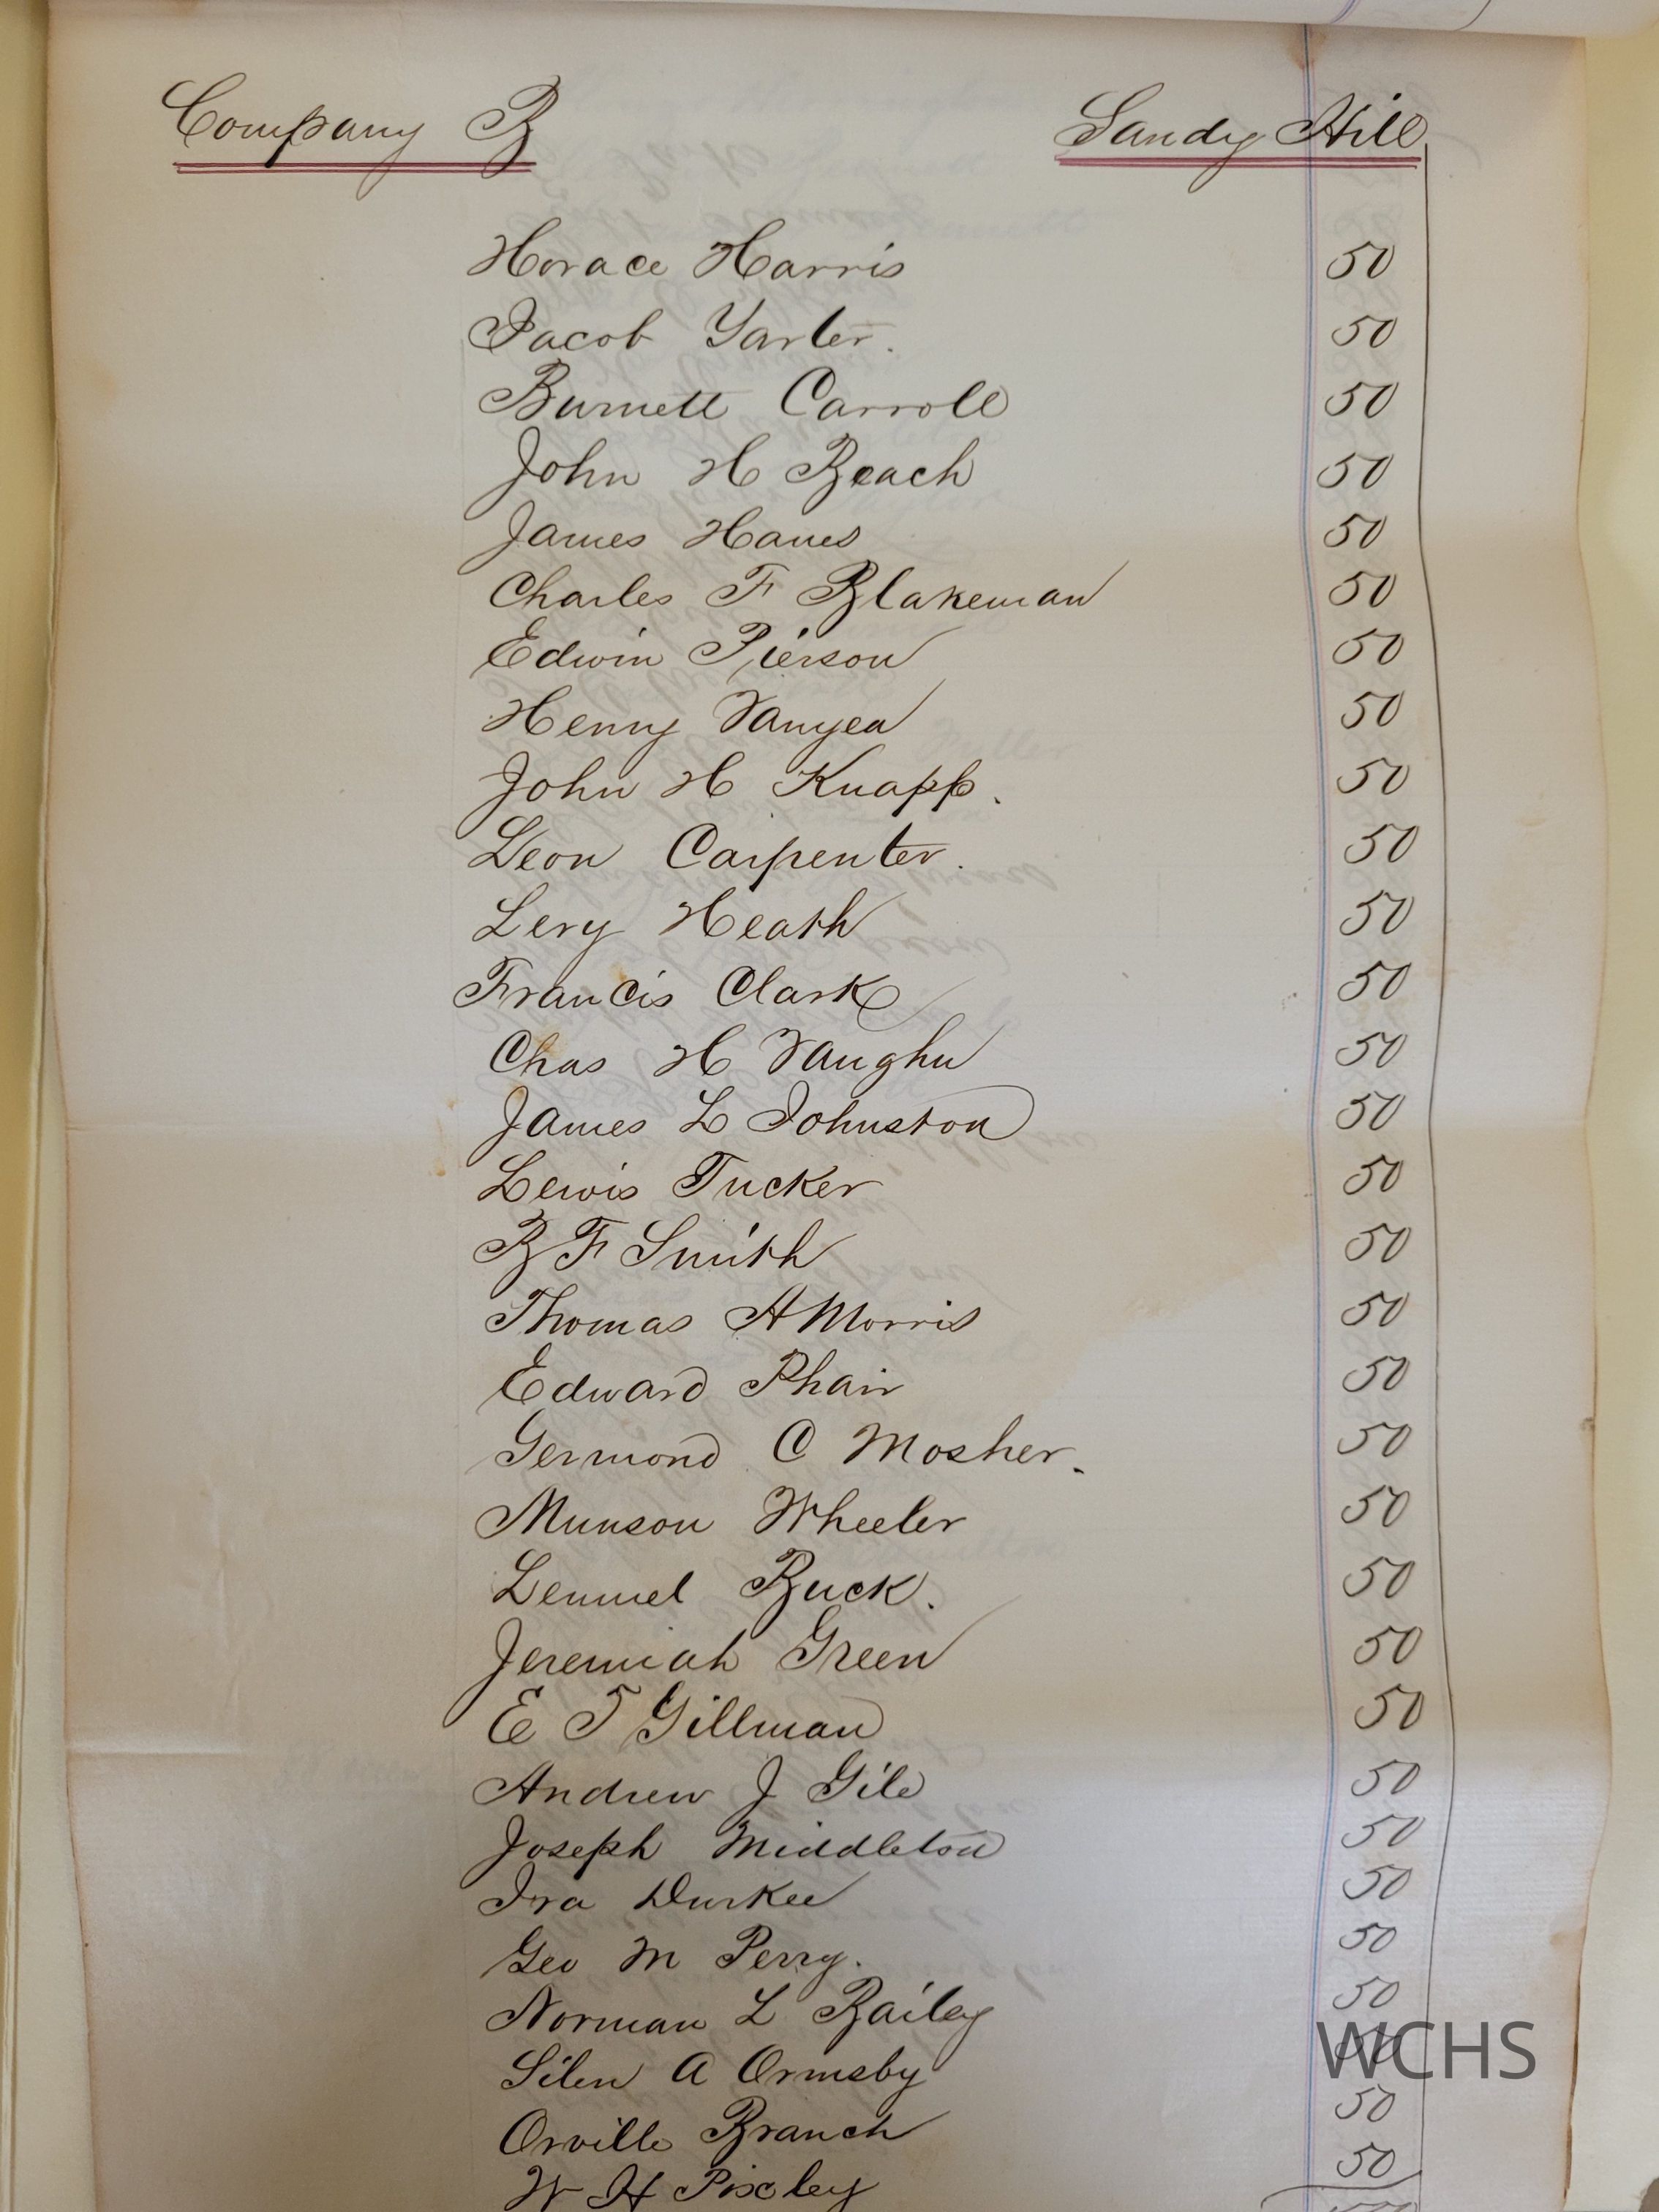 Company B Sandy Hill
Horace Harris 50
Jacob Yarter. 50
Burnett Carroll 50
John H Beach 50
James Hanes 50
Charles F Blakeman 50
Edwin Pierson 50
Henry Vanyea 50
John H Knapp. 50
Leon Carpenter. 50
Levy Heath 50
Francis Clark 50
Chas H Vaughn 50
James L Johnston 50
Lewis Tucker 50
B F Smith 50
Thomas A Morris 50
Edward Phair 50
Germond C Mosher. 50
Munson Wheeler 50
Lemuel Buck. 50
Jeremiah Green 50
E T Gillman 50
Andrew J Gile 50
Joseph Middleton 50
Ira Durkee 50
Geo M Perry. 50
Norman L Bailey 50
Silen A Ormsby 50
WCHS
Orville Branch 50
W H Pixley 50